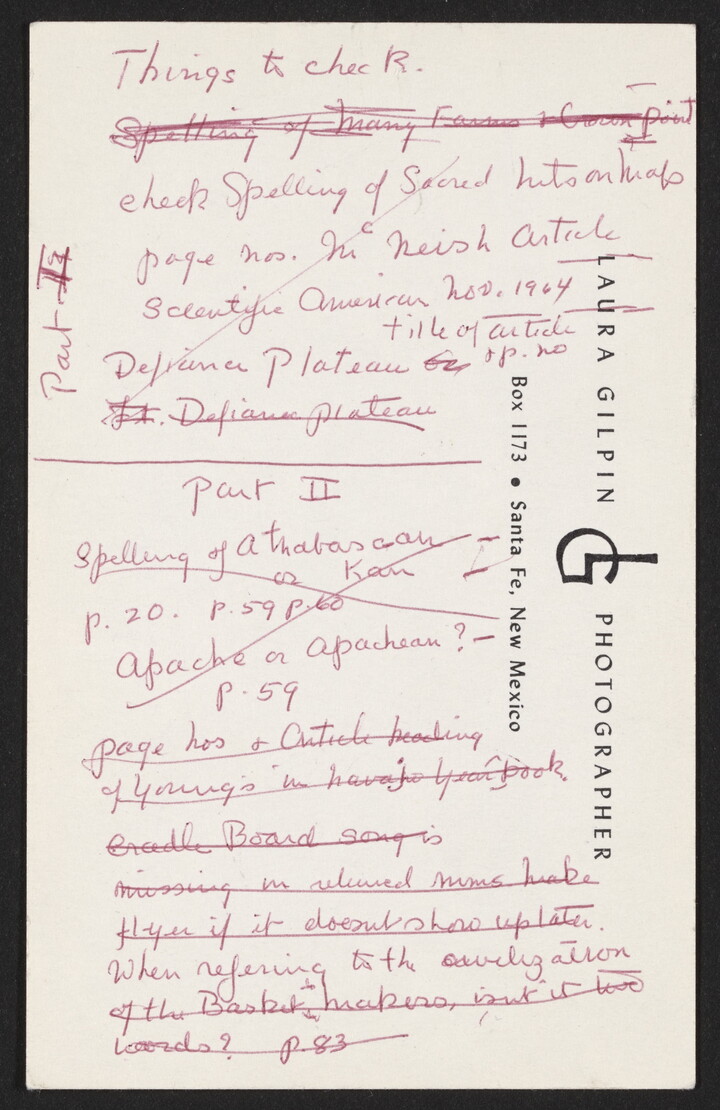 Things to check.
Spelling of Many Farms & Crown point
check Spelling of Sacred Mts on Maps
page nos. Mc Neish Article
Scientific American Nov. 1964
title of article
& p. no
Defiance Plateau or
Ft. Defiance plateau
Part II
Part II
Spelling of Athabascan
or Kan
p. 20. p. 59 p. 60
Apache or Apachean?
p. 59
page nos & Article heading
of Young's in Navajo Yearbook.
Cradle Board song is
missing in returned mms make
flyer if it doesn't show up later.
When refering to the civilization
of the Basket Makers, isn't it two
words? p. 83
LAURA GILPIN PHOTOGRAPHER
Box 1173 • Santa Fe, New Mexico